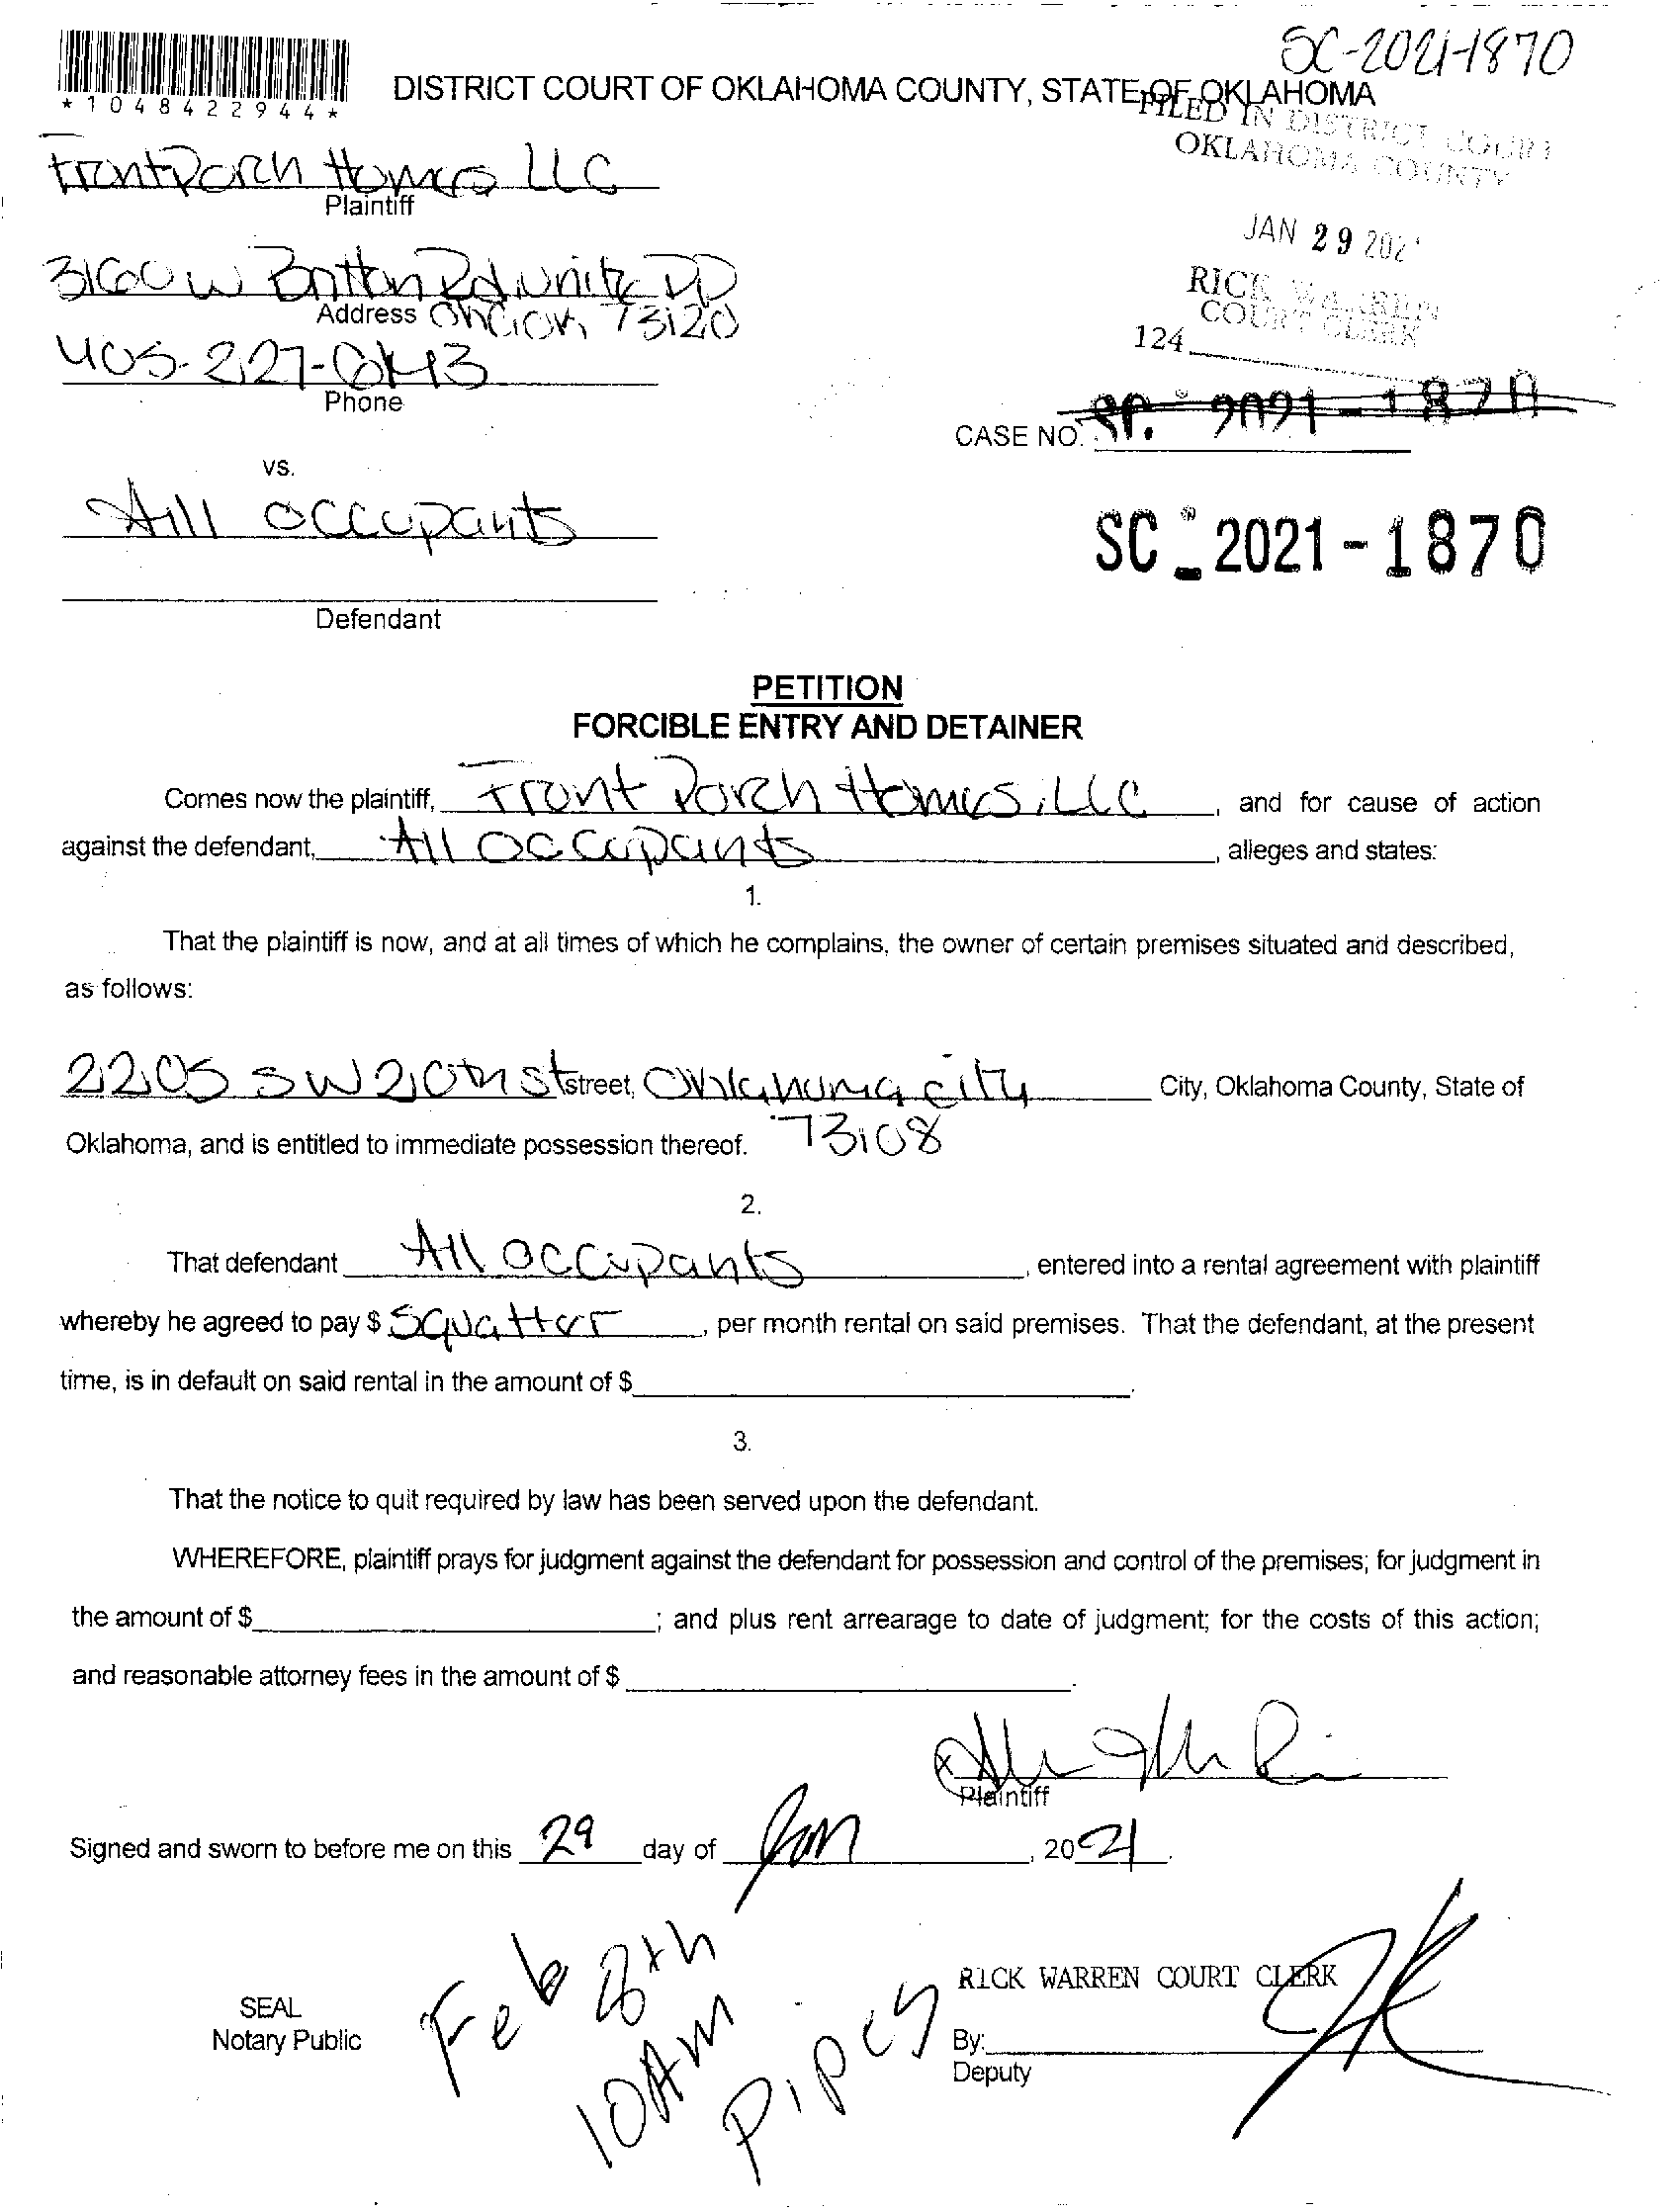 SC-2021-1870
*1048422944*
DISTRICT COURT OF OKLAHOMA COUNTY, STATE OF OKLAHOMA
FILED IN DISTRICT COURT
OKLAHOMA COUNTY
FrontPorch Homes LLC
Plaintiff
JAN 29 202
3160 W Britton Rd, Unit DD
RICK WARREN
COURT CLERK
Address 73120
124
405-227-
Phone
CASE NO. 2021-1870
vs.
All occupants
SC-2021-1870
Defendant
PETITION
FORCIBLE ENTRY AND DETAINER
Comes now the plaintiff, Front Porch Homes, LLC, and for cause of action
against the defendant, All Occupants, alleges and states:
1.
That the plaintiff is now, and at all times of which he complains, the owner of certain premises situated and described,
as follows:
2205 SW 20th St street, Oklahoma city City, Oklahoma County, State of
Oklahoma, and is entitled to immediate possession thereof. 73108
2.
That defendant All Occupants, entered into a rental agreement with plaintiff
whereby he agreed to pay $ Squatter, per month rental on said premises. That the defendant, at the present
time, is in default on said rental in the amount of $
3.
That the notice to quit required by law has been served upon the defendant.
WHEREFORE, plaintiff prays for judgment against the defendant for possession and control of the premises; for judgment in
the amount of $ ; and plus rent arrearage to date of judgment; for the costs of this action;
and reasonable attorney fees in the amount of $ .
Plaintiff
Signed and sworn to before me on this 29 day of Jan, 2021.
Feb 8th
10AM
Pipes
RICK WARREN COURT CLERK
SEAL
Notary Public
By:
Deputy